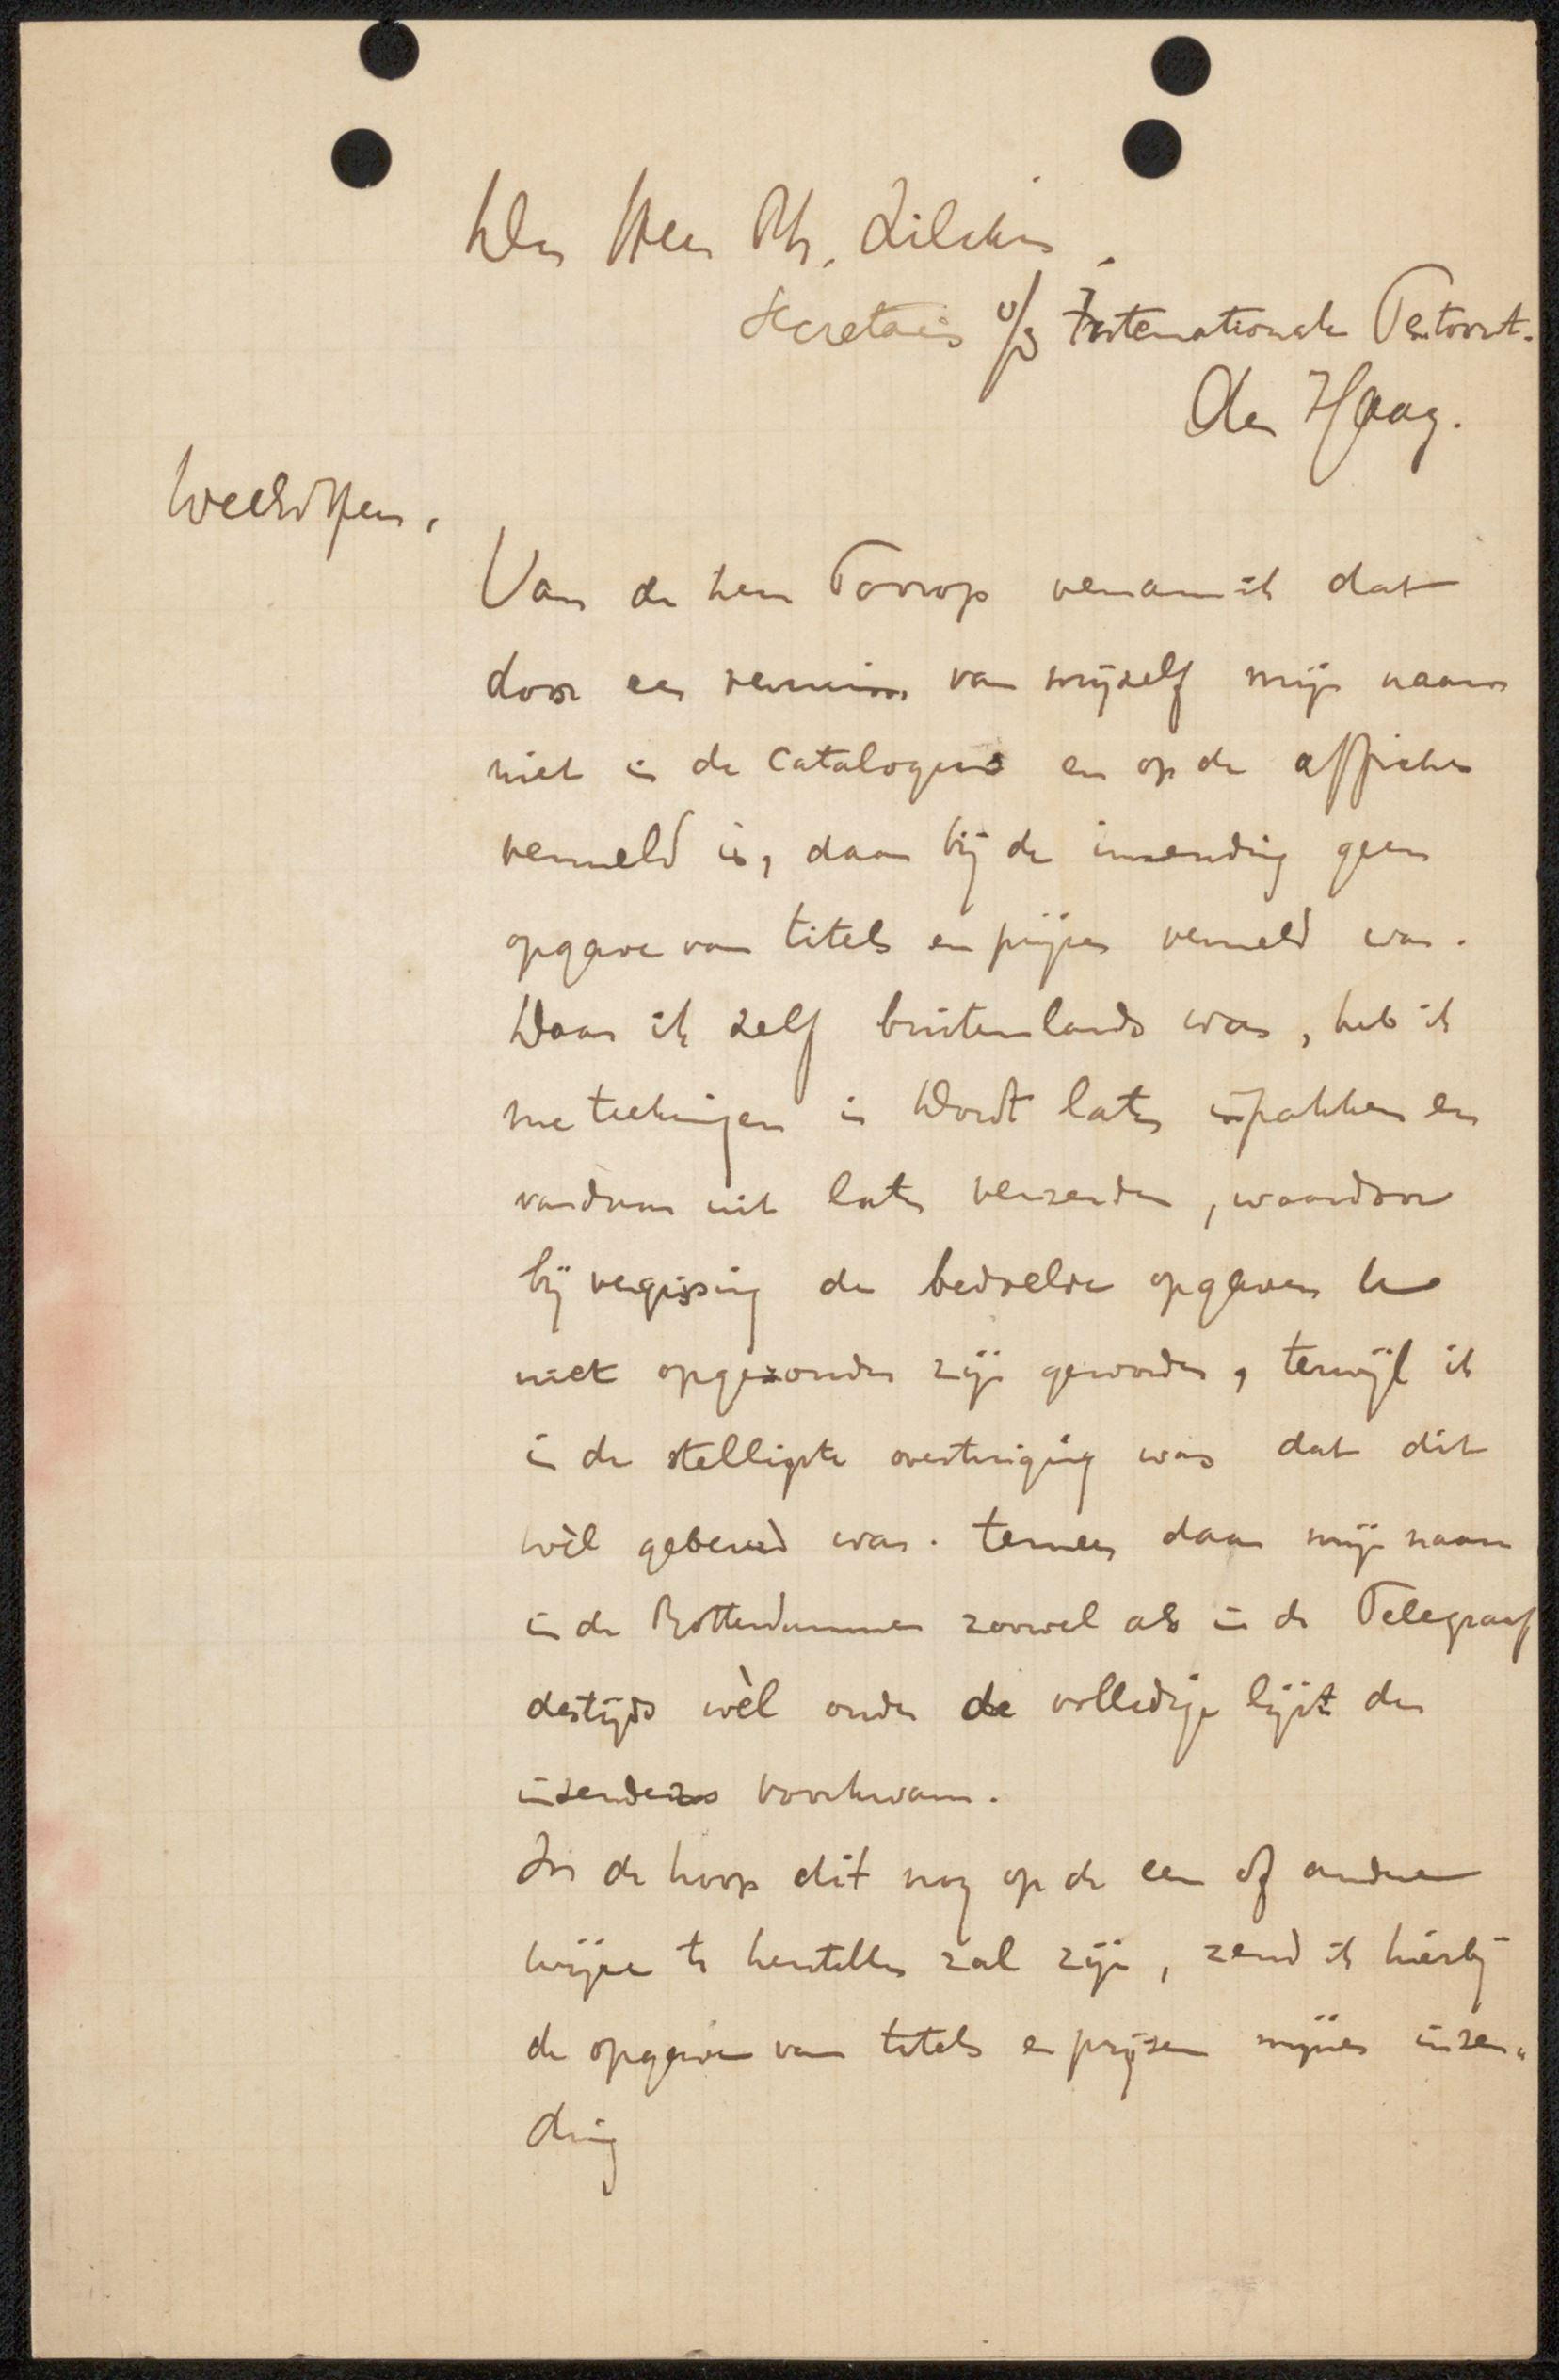 Den Heer Ph. Zilcken.
Secretaris v/d Internationale Tentoonst.
Den Haag.
WelEdHeer,
Van de heer Toorop vernam ik dat
door een verzuim van mijzelf mijn naam
niet in de Catalogus en op de affiches
vermeld is, daar bij de inzending geen
opgave van titels en prijzen vermeld was.
Daar ik zelf buitenlands was, heb ik
mé teekeningen in Dordt laten inpakken en
vandaar uit laten verzenden, waardoor
bij vergissing de bedoelde opgaven
niet opgezonden zijn geworden, terwijl ik
in de stelligste overtuiging was dat dit
wèl gebeurd was. temeer daar mijn naam
in de Rotterdammer zoowel als in de Telegraaf
destijds wèl onder de volledige lijst der
inzenders voorkwam.
In de hoop dit nog op de een of andere
wijze te herstellen zal zijn, zend ik hierbij
de opgave van titels en prijzen mijner inzen„
ding